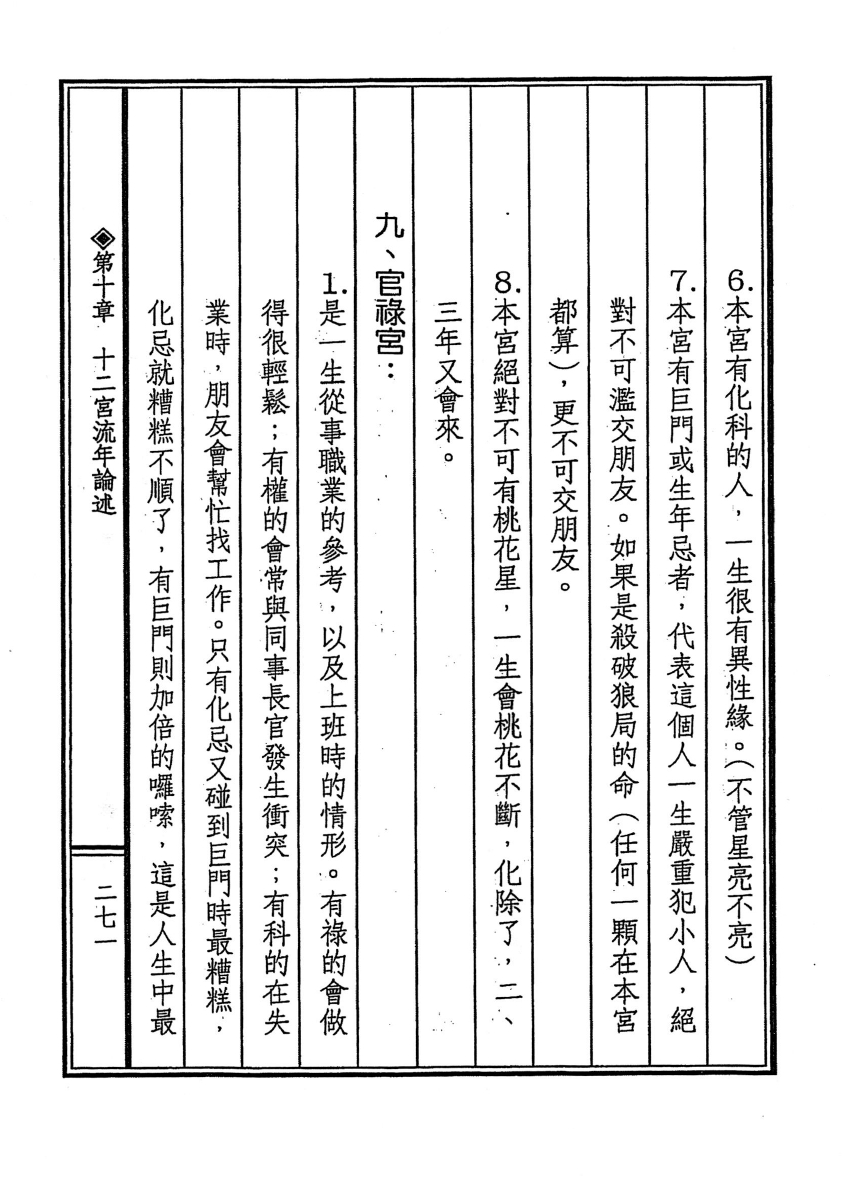 6.本宮有化科的人，一生很有異性緣。（不管星亮不亮）
7.本宮有巨門或生年忌者，代表這個人一生嚴重犯小人，絕
對不可濫交朋友。如果是殺破狼局的命（任何一顆在本宮
都算），更不可交朋友。
8.本宮絕對不可有桃花星，一生會桃花不斷，化除了，二、
三年又會來。
九、官祿宮：
1.是一生從事職業的參考，以及上班時的情形。有祿的會做
得很輕鬆；有權的會常與同事長官發生衝突；有科的在失
業時，朋友會幫忙找工作。只有化忌又碰到巨門時最糟糕，
化忌就糟糕不順了，有巨門則加倍的囉嗦，這是人生中最
◈第十章　十二宮流年論述
二七一